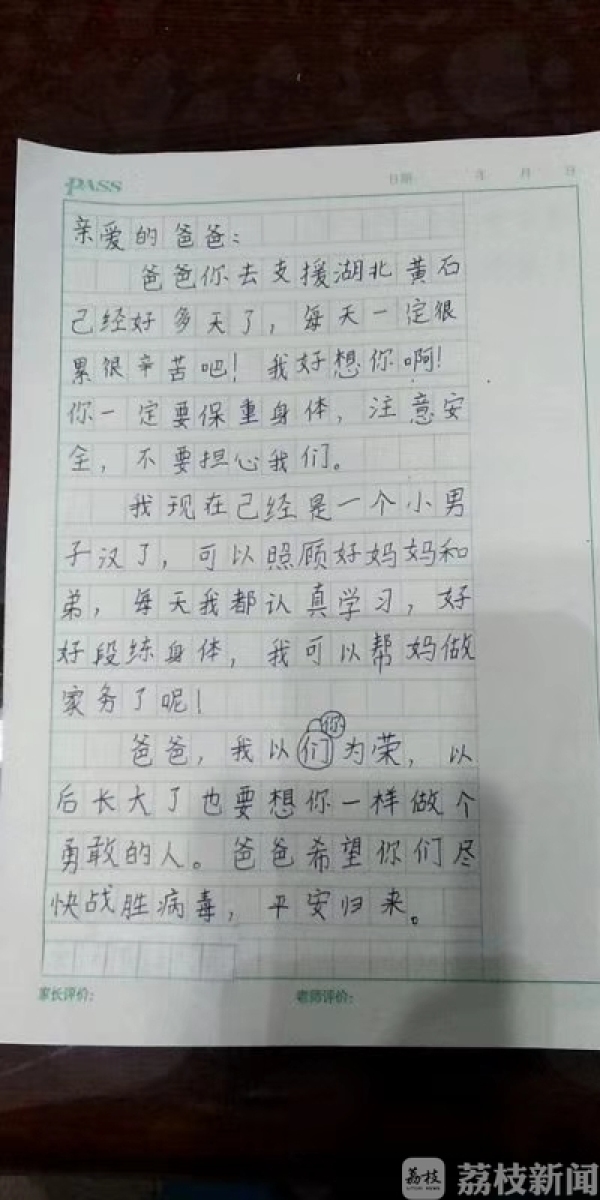 PASS
日期 年 月 日
亲爱的爸爸:
爸爸你去支援湖北黄石
己经好多天了，每天一定很
累很辛苦吧！我好想你啊！
你一定要保重身体，注意安
全，不要担心我们。
我现在己经是一个小男
子汉了，可以照顾好妈妈和
弟，每天我都认真学习，好
好段练身体，我可以帮妈做
家务了呢！
爸爸，我以你们为荣，以
后长大了也要想你一样做个
勇敢的人。爸爸希望你们尽
快战胜病毒，平安归来。
家长评价: 老师评价:
荔枝 荔枝新闻